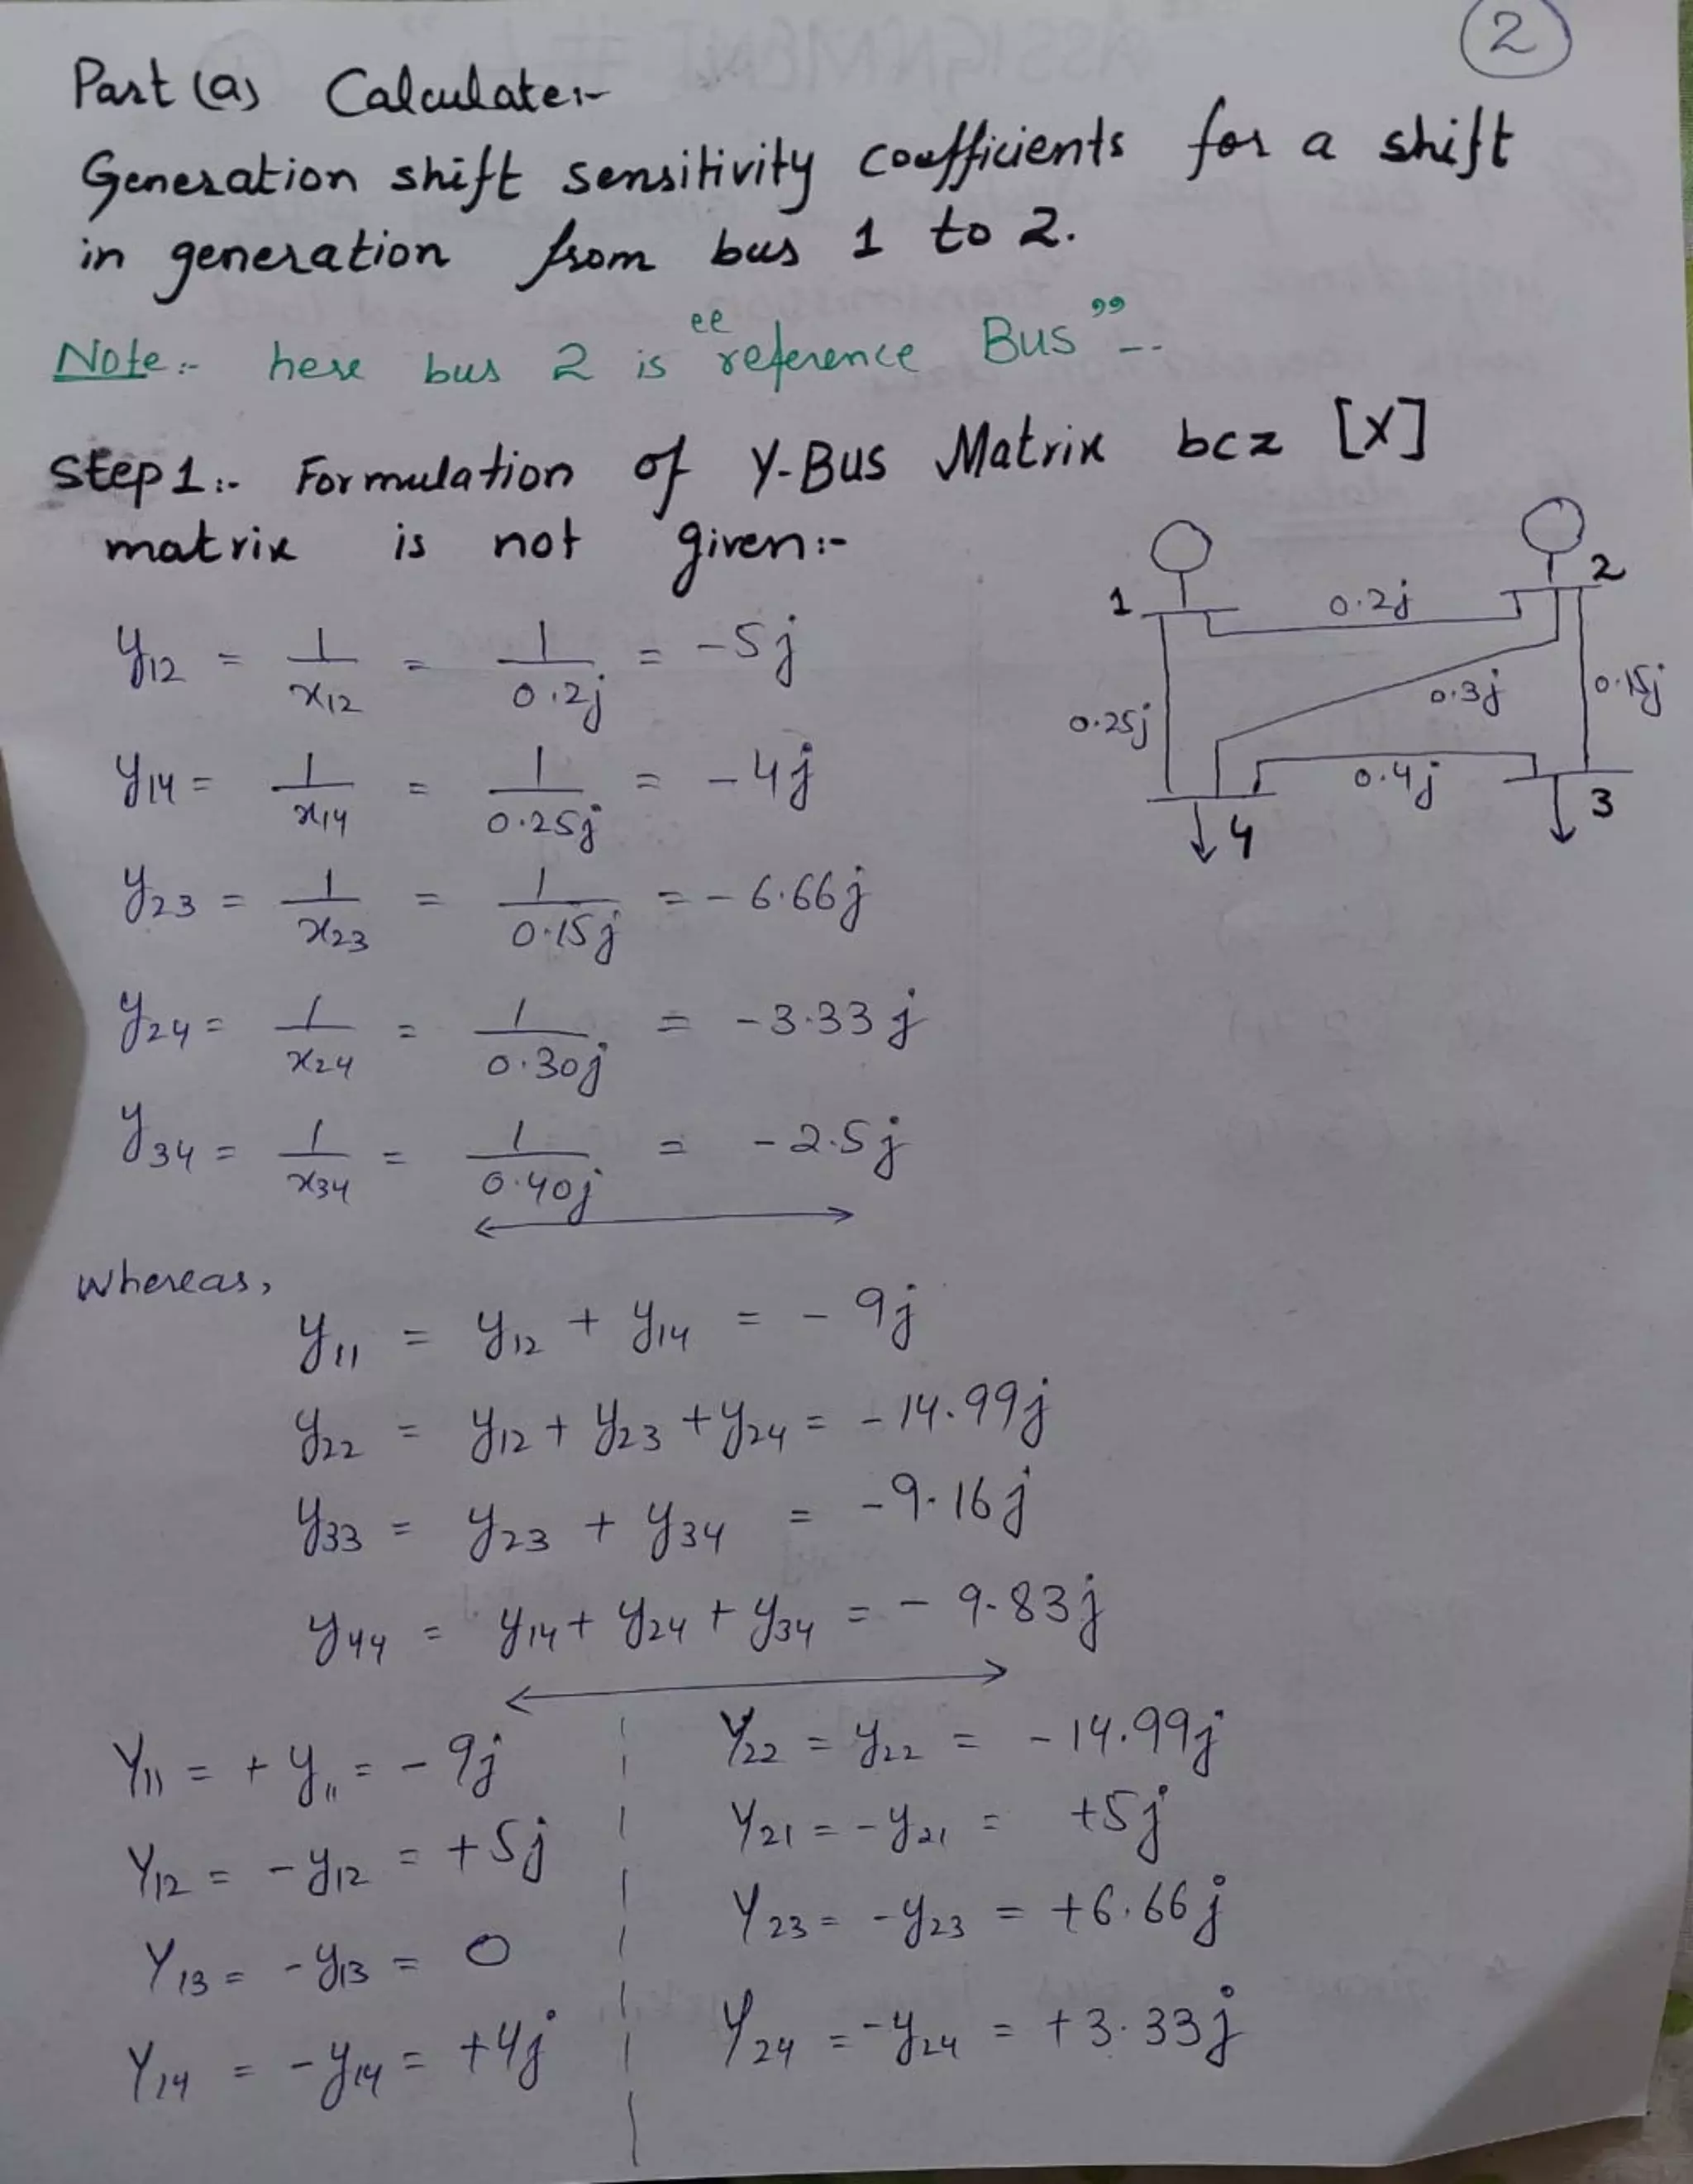 2
Part (a) Calculate:-
Generation shift sensitivity coefficients for a shift
in generation from bus 1 to 2.
Note:- here bus 2 is "reference Bus" --
Step 1:- Formulation of Y-Bus Matrix bcz [X]
matrix is not given:-
y12 = 1/x12 = 1/0.2j = -5j
y14 = 1/x14 = 1/0.25j = -4j
y23 = 1/x23 = 1/0.15j = -6.66j
y24 = 1/x24 = 1/0.30j = -3.33j
y34 = 1/x34 = 1/0.40j = -2.5j
1
2
0.2j
0.25j
0.3j
0.15j
0.4j
4
3
Whereas,
y11 = y12 + y14 = -9j
y22 = y12 + y23 + y24 = -14.99j
y33 = y23 + y34 = -9.16j
y44 = y14 + y24 + y34 = -9.83j
Y11 = +y11 = -9j
Y12 = -y12 = +5j
Y13 = -y13 = 0
Y14 = -y14 = +4j
Y22 = y22 = -14.99j
Y21 = -y21 = +5j
Y23 = -y23 = +6.66j
Y24 = -y24 = +3.33j